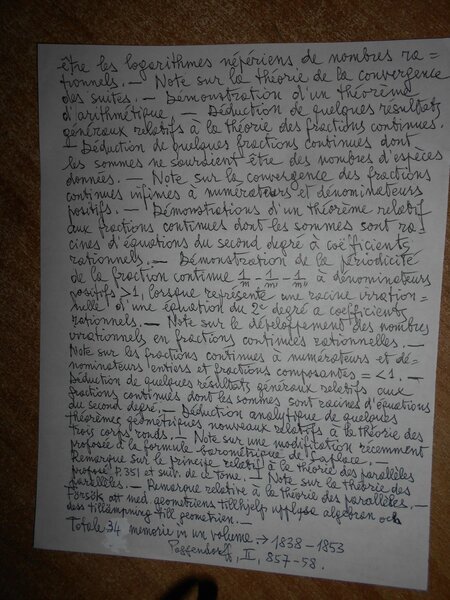 être les logarithmes népériens de nombres ra=
tionnels. — Note sur la théorie de la convergence
des suites. — Démonstration d'un théorème
d'arithmétique — Déduction de quelques résultats
généraux relatifs à la théorie des fractions continues.
— Déduction de quelques fractions continues dont
les sommes ne sauroient être des nombres d'espèces
données. — Note sur la convergence des fractions
continues infinies à numérateurs et dénominateurs
positifs. — Démonstrations d'un théorème relatif
aux fractions continues dont les sommes sont ra=
cines d'équations du second degré à coëficients
rationnels. — Démonstration de la périodicité
de la fraction continue 1/m - 1/m' - 1/m'' à dénominateurs
positifs >1, lorsque représente une racine irration=
nelle d'une équation du 2e degré a coefficients
rationnels. — Note sur le développement des nombres
irrationnels en fractions continues rationnelles. —
Note sur les fractions continues à numérateurs et dé=
nominateurs entiers et fractions composantes = <1. —
Déduction de quelques résultats généraux relatifs aux
fractions continues dont les sommes sont racines d'équations
du second degré. — Déduction analytique de quelques
théorèmes géométriques nouveaux relatifs à la théorie des
trois corps ronds. — Note sur une modification récemment
proposée à la formule barométrique de Laplace. —
Remarque sur le principe relatif à la théorie des parallèles
proposé P. 351 et suiv. de ce tome. — Note sur la théorie des
parallèles. — Remarque relative à la théorie des parallèles. —
Försök att med geometriens tillhjelp upplösa algebran och
dess tillämpning till geometrien. —
Totale 34 memorie in un volume → 1838 – 1853
Poggendorff, II, 857-58.